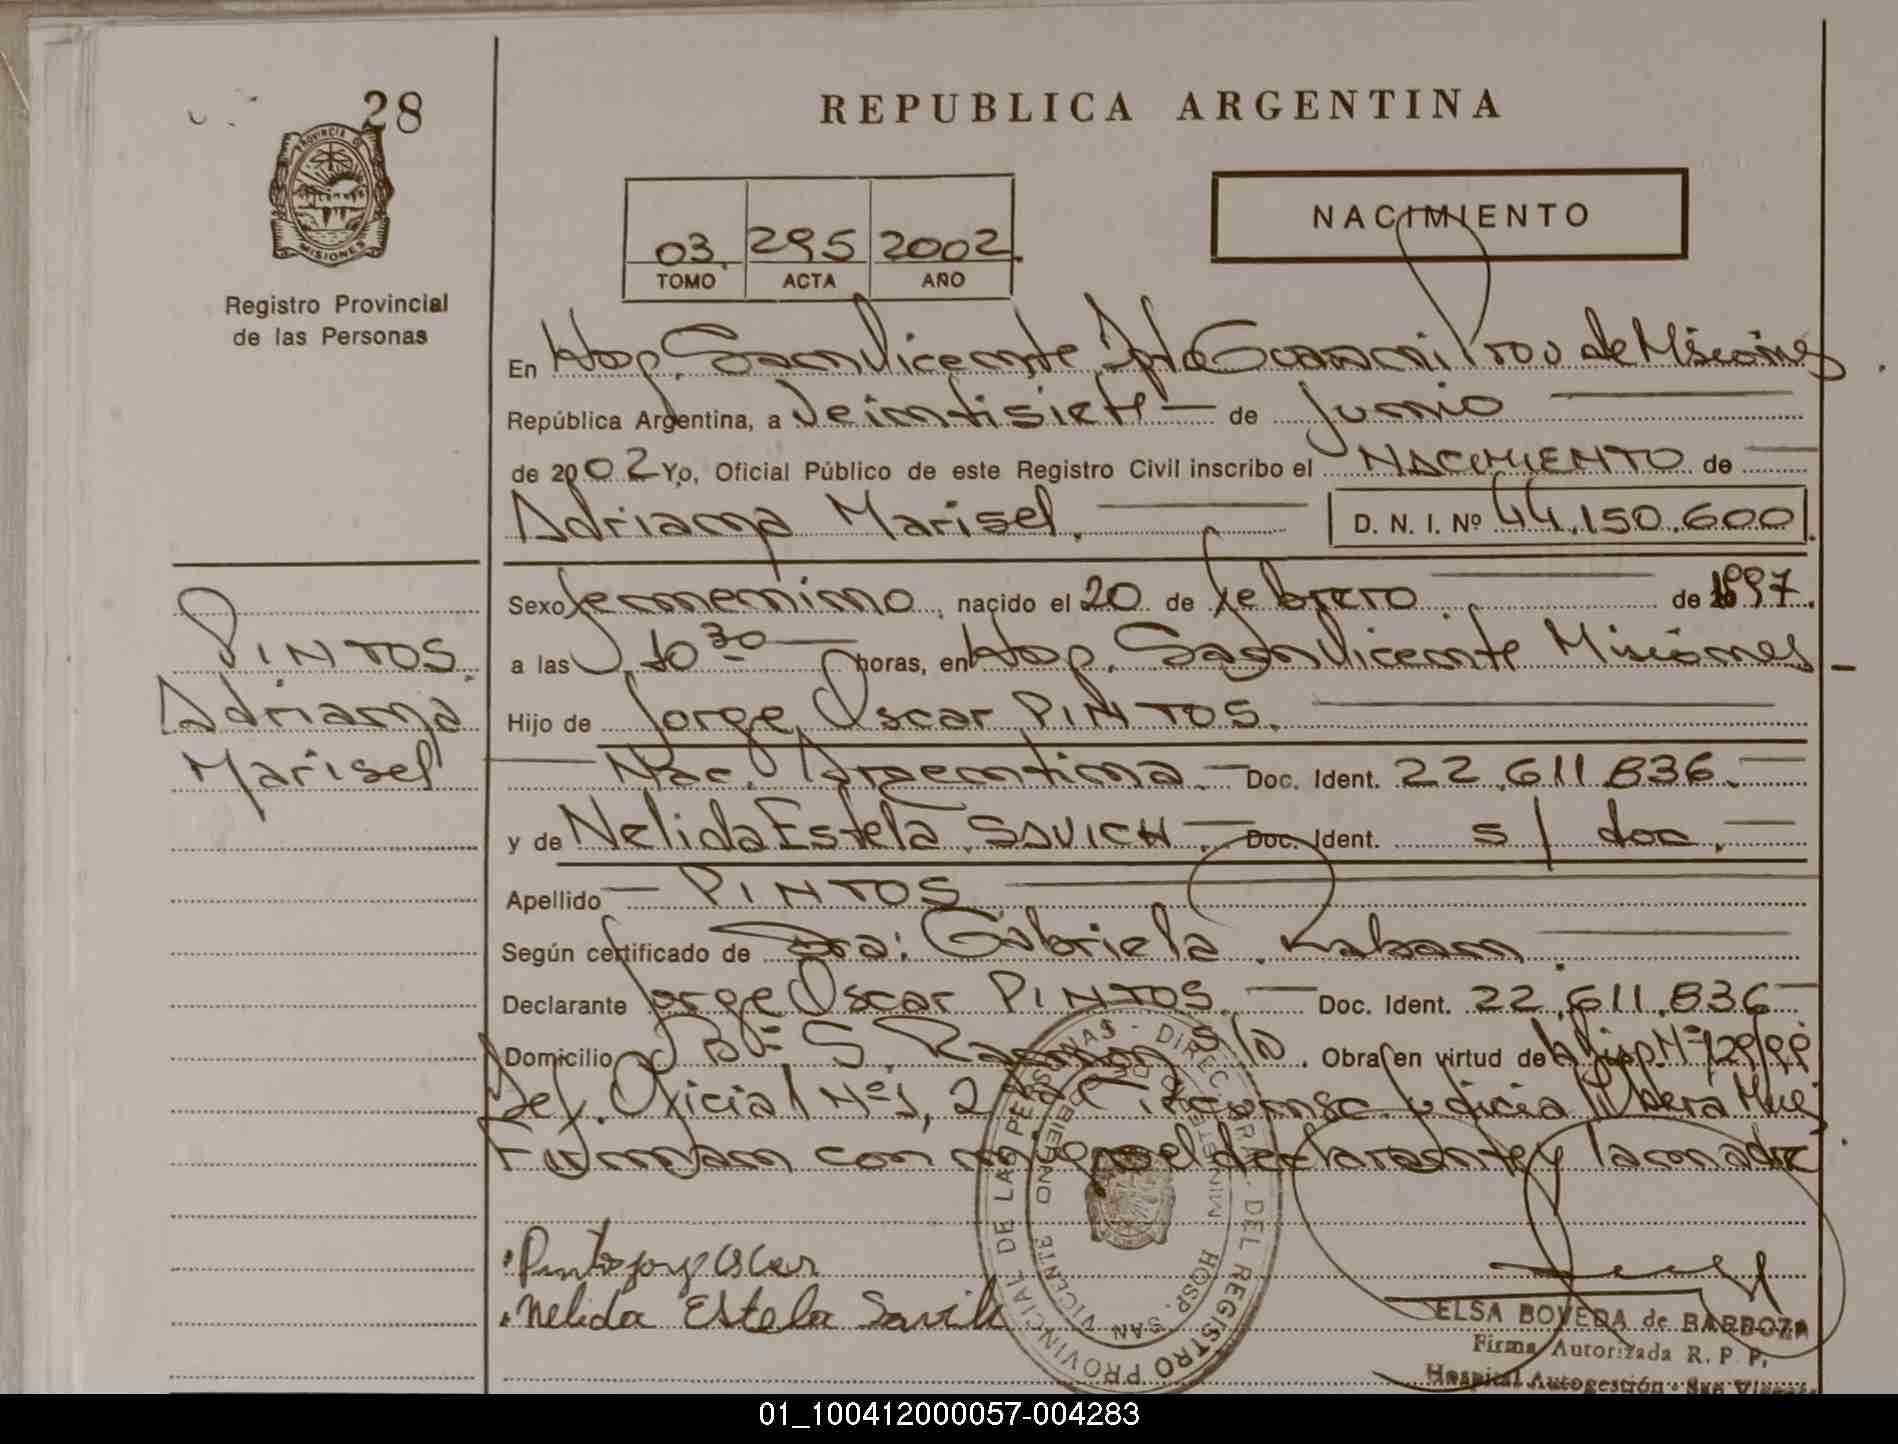 28
PROVINCIA DE
MISIONES
Registro Provincial
de las Personas
REPUBLICA ARGENTINA
03. 295 2002.
TOMO ACTA AÑO
NACIMIENTO
En Hosp. San Vicente, Dpto Guarani Prov de Misiones
República Argentina, a Veintisiete — de Junio
de 2002 Yo, Oficial Público de este Registro Civil inscribo el NACIMIENTO de
Adriana Marisel. D. N. I. Nº 44.150.600
Sexo femenino, nacido el 20 de febrero de 1997.
a las 10 30 horas, en Hosp. San Vicente Misiones —
Hijo de Jorge Oscar PINTOS.
Nac. Argentina — Doc. Ident. 22.611.836.
y de Nelida Estela SAVICH — Doc. Ident. s/ doc.
Apellido — PINTOS
Según certificado de Dra: Gabriela
Declarante Jorge Oscar PINTOS. — Doc. Ident. 22.611.836
Domicilio Bº S. Ramon S/N. Obra en virtud de Disp. Nº 129/99
Def. Oficial Nº 1, 2da Circunsc. Judicial
Firman con migo el declarante y la madre
PINTOS
Adriana
Marisel
Pintos Jorge Oscar
Nelida Estela Savich
DIREC. GRAL. DEL REGISTRO PROVINCIAL DE LAS PERSONAS
HOSP. SAN VICENTE
ELSA BOVEDA de BARBOZA
Firma Autorizada R. P. P.
Hospital Autogestión - San Vicente
01_100412000057-004283